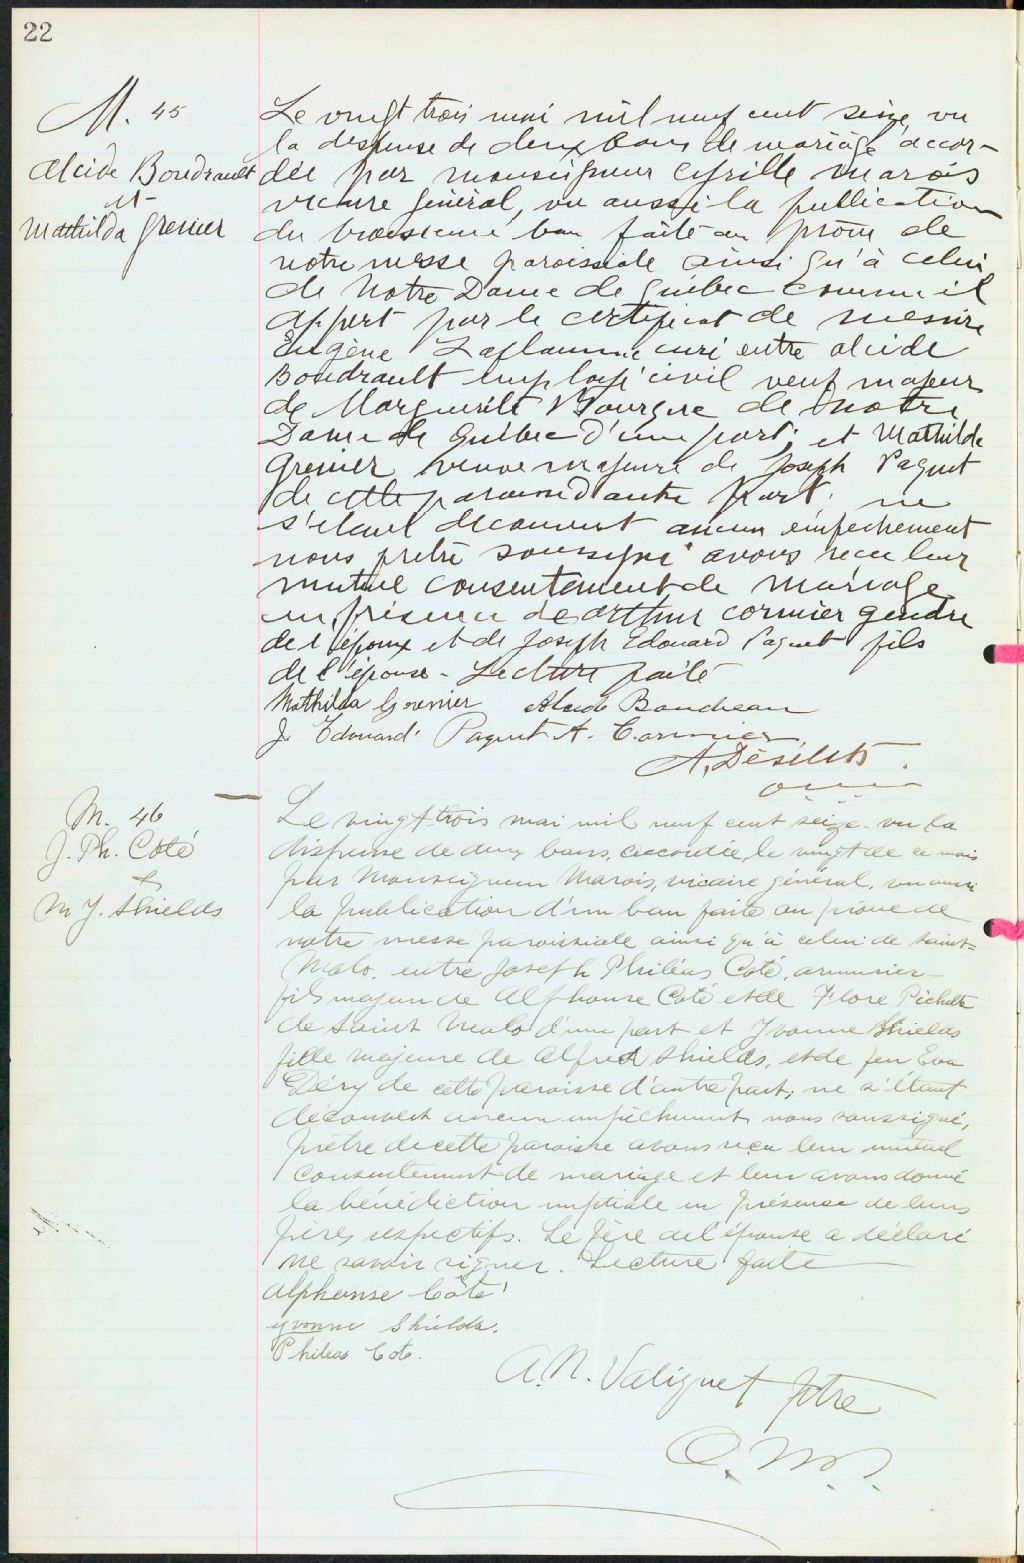 22
M. 45
Alcide Boudrault
et
Mathilda Grenier
Le vingt trois mai mil neuf cent seize, vu
la dispense de deux bans de mariage accor-
dée par monseigneur Cyrille Marois
vicaire général, vu aussi la publication
du troisieme ban faite au prône de
notre messe paroissiale ainsi qu'à celui
de Notre Dame de Québec comme il
appert par le certificat de messire
Eugène Laflamme curé entre Alcide
Boudrault employé civil veuf majeur
de Marguerite Bourque de Notre
Dame de Québec d'une part; et Mathilde
Grenier veuve majeure de Joseph Paquet
de cette paroisse d'autre part. ne
s'étant découvert aucun empêchement
nous prêtre soussigné avons reçu leur
mutuel consentement de mariage
en présence de Arthur Cormier gendre
de l'époux et de Joseph Edouard Paquet fils
de l'épouse - Lecture faite
Mathilda Grenier Alcide Boudreau
J. Edouard Paquet A. Cormier
A. Désilets
M. 46
J. Ph. Coté
+
M Y. Shields
Le vingt trois mai mil neuf cent seize - vu la
dispense de deux bans, accordée le vingt de ce mois
par Monseigneur Marois, vicaire général, vu aussi
la publication d'un ban faite au prône de
notre messe paroissiale ainsi qu'à celui de Saint-
Malo, entre Joseph Philéas Coté, armurier-
fils majeur de Alphonse Coté et de Flore Pichette
de Saint Malo d'une part et Yvonne Shields
fille majeure de Alfred Shields, et de feu Eva
Déry de cette paroisse d'autre part; ne s'étant
découvert aucun empêchement, nous soussigné,
prêtre de cette paroisse avons reçu leur mutuel
consentement de mariage et leur avons donné
la bénédiction nuptiale en présence de leurs
pères respectifs. Le père de l'épouse a déclaré
ne savoir signer. Lecture faite
Alphonse Côté
Yvonne Shields.
Phileas Cote.
A. N. Valiquet ptre
O. M. I.